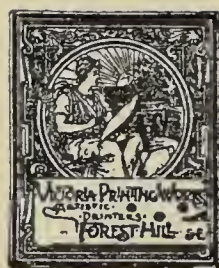 VICTORIA PRINTING WORKS
ARTISTIC
PRINTERS
FOREST HILL SE